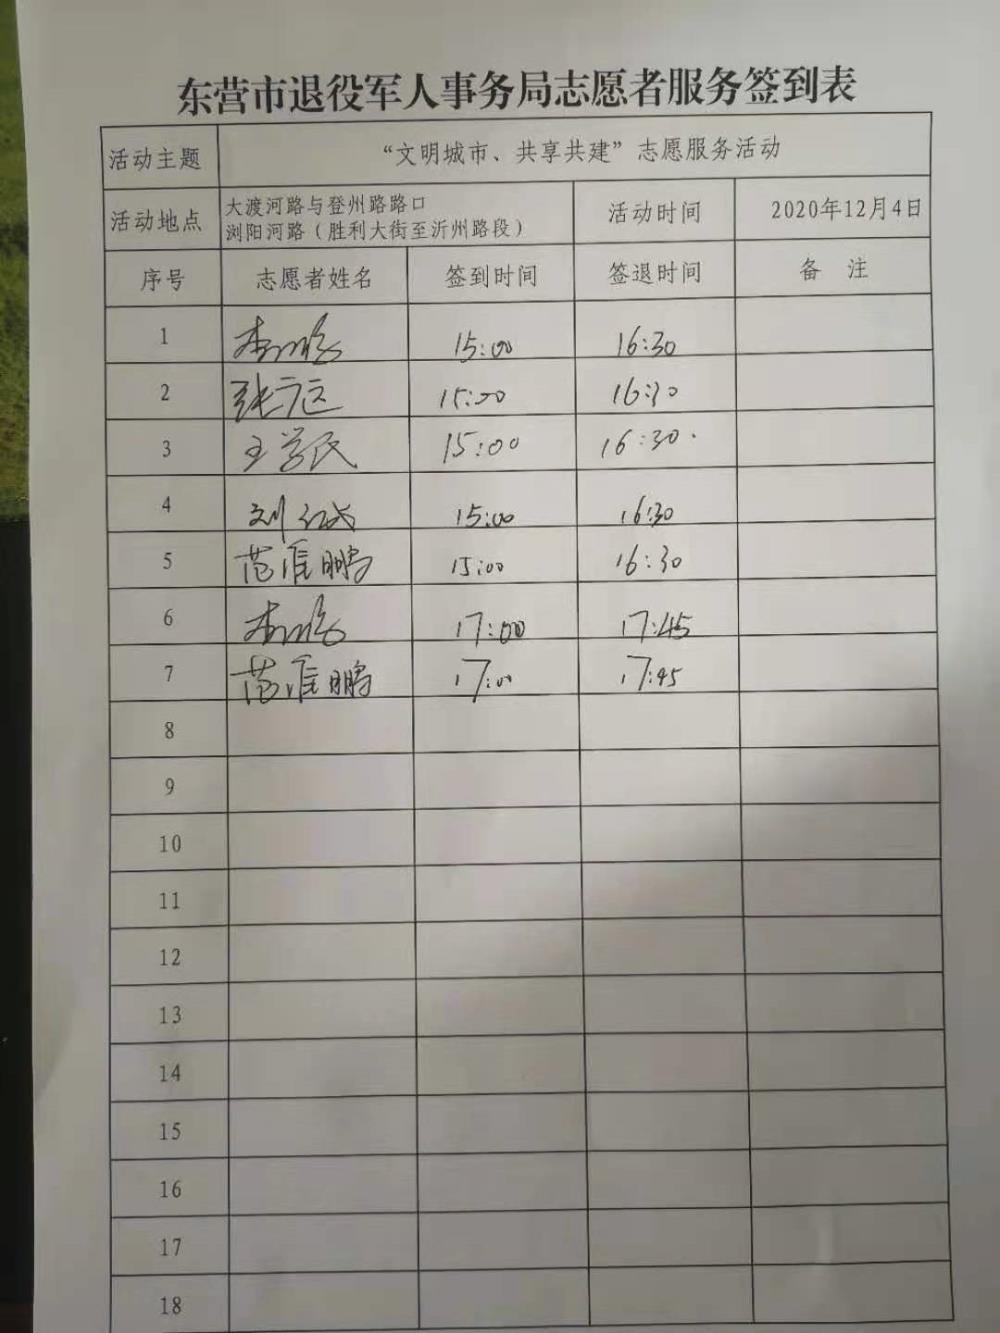 东营市退役军人事务局志愿者服务签到表
活动主题 “文明城市、共享共建”志愿服务活动
活动地点 大渡河路与登州路路口 活动时间 2020年12月4日
浏阳河路（胜利大街至沂州路段）
序号 志愿者姓名 签到时间 签退时间 备 注
1 15:00 16:30
2 张广远 15:00 16:30
3 王学民 15:00 16:30.
4 刘 15:00 16:30
5 范淮鹏 15:00 16:30
6 17:00 17:45
7 范淮鹏 17:00 17:45
8
9
10
11
12
13
14
15
16
17
18